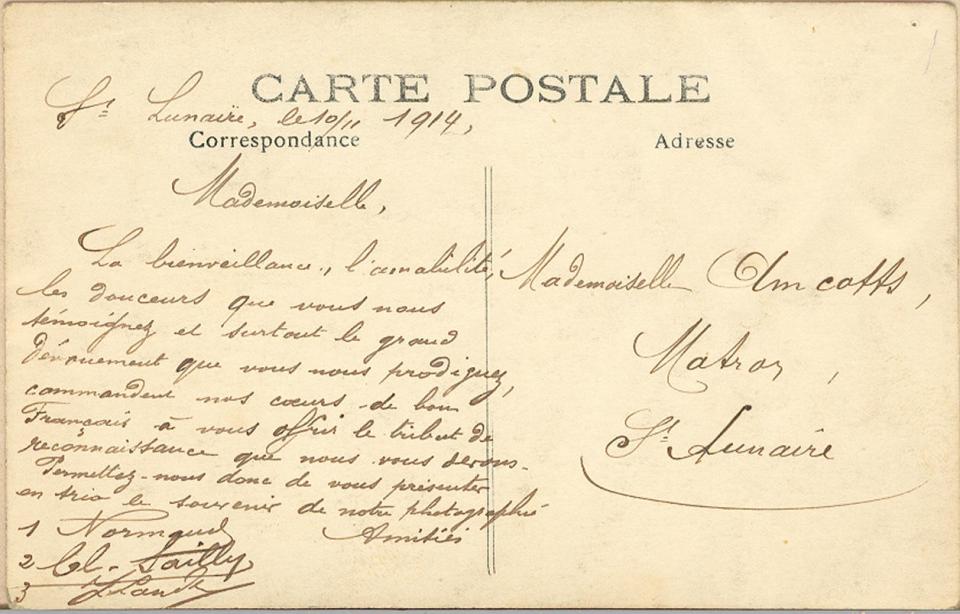 CARTE POSTALE
St Lunaire, le 10/11 1914,
Correspondance
Adresse
Mademoiselle,
La bienveillance, l'amabilité,
les douceurs que vous nous
témoignez et surtout le grand
dévouement que vous nous prodiguez,
commandent nos cœurs de bon
Français à vous offrir le tribut de
reconnaissance que nous vous devons.
Permettez-nous donc de vous présenter
en trio le souvenir de notre photographie
Amitiés
1 Normand
2 Cl. Sailly
3
Mademoiselle Amcotts,
St Lunaire